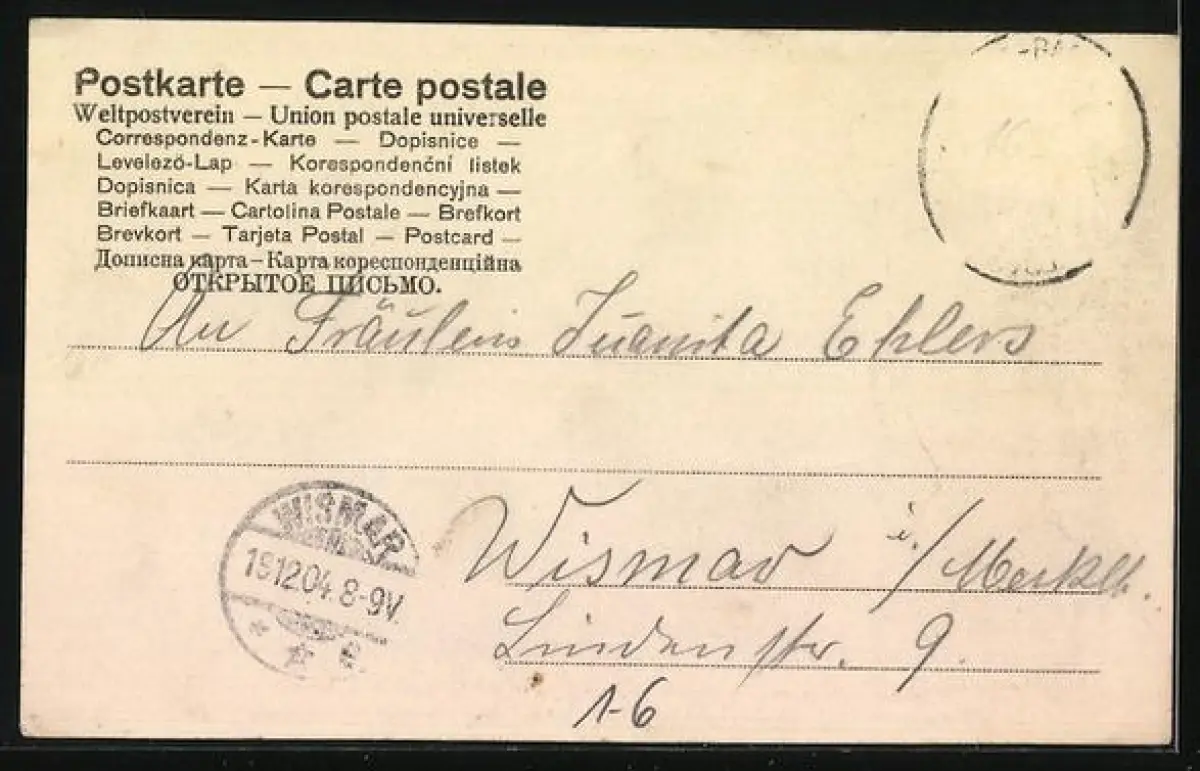 Postkarte — Carte postale
Weltpostverein — Union postale universelle
Correspondenz-Karte — Dopisnice —
Levelező-Lap — Korespondenční listek
Dopisnica — Karta korespondencyjna —
Briefkaart — Cartolina Postale — Brefkort
Brevkort — Tarjeta Postal — Postcard —
Дописна карта — Карта кореспонденційна
ОТКРЫТОЕ ПИСЬМО.
An Fräulein Juanita Ehlers
WISMAR
Wismar i/Mecklb.
12.04.8-9V.
Lindenstr. 9.
1-6